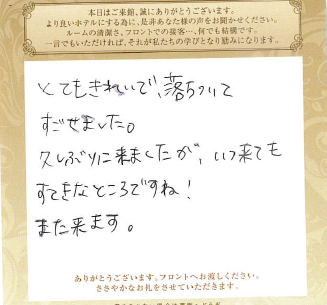 本日はご来館、誠にありがとうございます。
より良いホテルにする為に、是非あなた様の声をお聞かせください。
ルームの清潔さ、フロントでの接客…、何でも結構です。
一言でもいただければ、それが私たちの学びとなり励みになります。
とてもきれいで、落ちついて
すごせました。
久しぶりに来ましたが、いつ来ても
すてきなところですね!
また来ます。
ありがとうございます。フロントへお渡しください。
ささやかなお礼をさせていただきます。